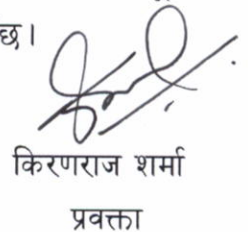 छ।
किरणराज शर्मा
प्रवक्ता